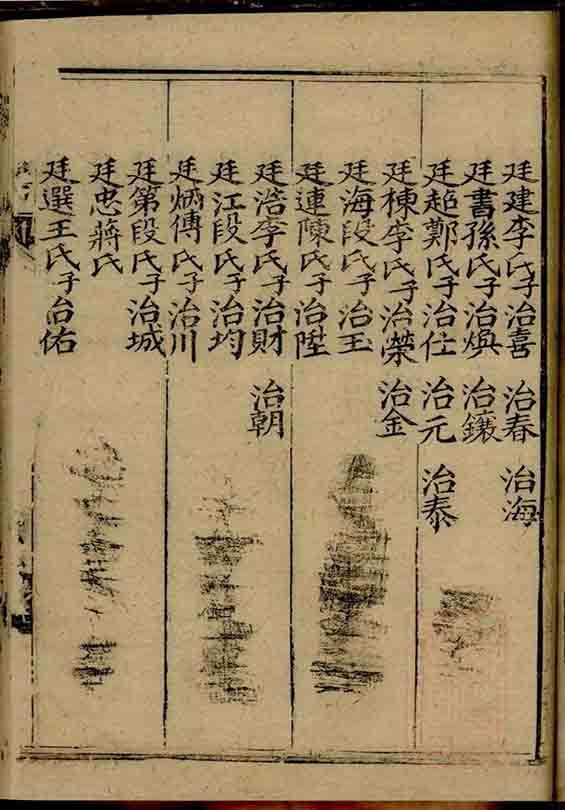 廷建李氏子治喜 治春 治海
廷書孫氏子治煥 治鑲
廷起鄭氏子治仕 治元 治泰
廷棟李氏子治榮 治金
廷海段氏子治玉
廷連陳氏子治陞
廷浩李氏子治財 治朝
廷江段氏子治均
廷炳傅氏子治川
廷第段氏子治城
廷忠蔣氏
廷選王氏子治佑